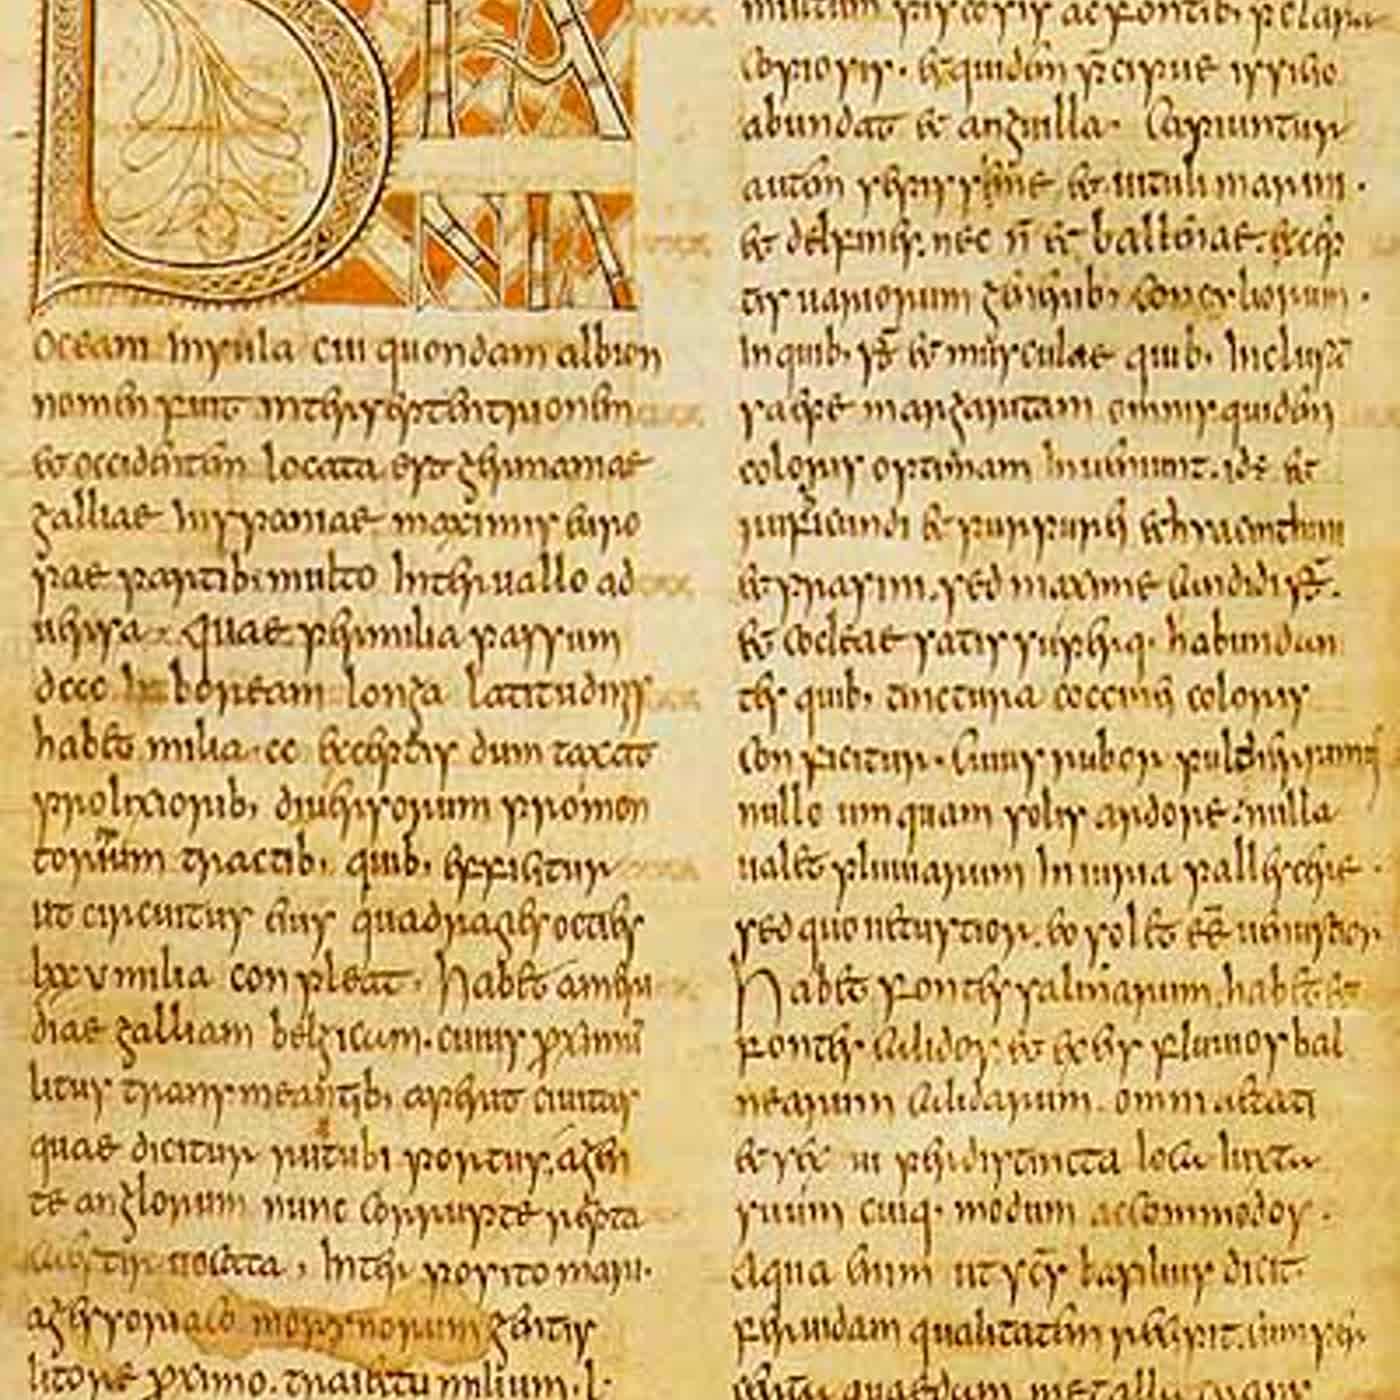 B
NIA
Oceani insula cui quondam albion
nomen fuit inter septentrionem
et occidentem locata est germaniae
galliae hispaniae maximis euro
pae partib; multo intervallo ad
uersa. Quae per milia passuum
dccc in boream longa latitudinis
habet milia. cc exceptis dum taxat
prolixiorib; diuersorum promon
toriorum tractib; quib; efficitur
ut circuitus eius quadragies octies
lxxv milia conpleat. Habet a meri
die galliam belgicam. cuius proximum
litus transmeantib; aperit ciuitas
quae dicitur rutubi portus. a gen
te anglorum nunc corrupte repta
caestir uocata, Interposito mari.
a gessoriaco morynorum gentis
litore proximo. traiectu milium. l.
multum piscosis ac fontib; prelara
copiosis. et quidem praecipue issicio
abundat et anguilla. Capiuntur
autem saepissime et uituli marini.
et delfines. nec non et ballenae. excep
tis uariorum generib; concyliorum.
In quib; sunt et musculae quib; inclusam
saepe margaritam omnis quidem
coloris optimam inueniunt. id est et
rubicundi et purpurei et hyacinthini
et prasini. sed maxime candidi. sunt.
et cocleae satis superq; habundan
tes quib; tinctura coccinei coloris
conficitur. Cuius rubor pulcherrimus
nullo umquam solis ardore. nulla
ualet pluuiarum iniuria pallescere.
sed quo uetustior. eo solet esse uenustior.
Habet fontes salinarum. habet et
fontes calidos et ex eis fluuios bal
nearum calidarum. omni aetati
et sexu per distincta loca iuxta
suum cuiq; modum accommodos.
Aqua enim ut scs basilius dicit
feruidam qualitatem recipit. cum per
certa quaedam metalla